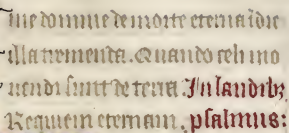 me domine de morte eterna in die
illa tremenda. Quando celi mo
uendi sunt et terra In laudibus
Requiem eternam. psalmus: